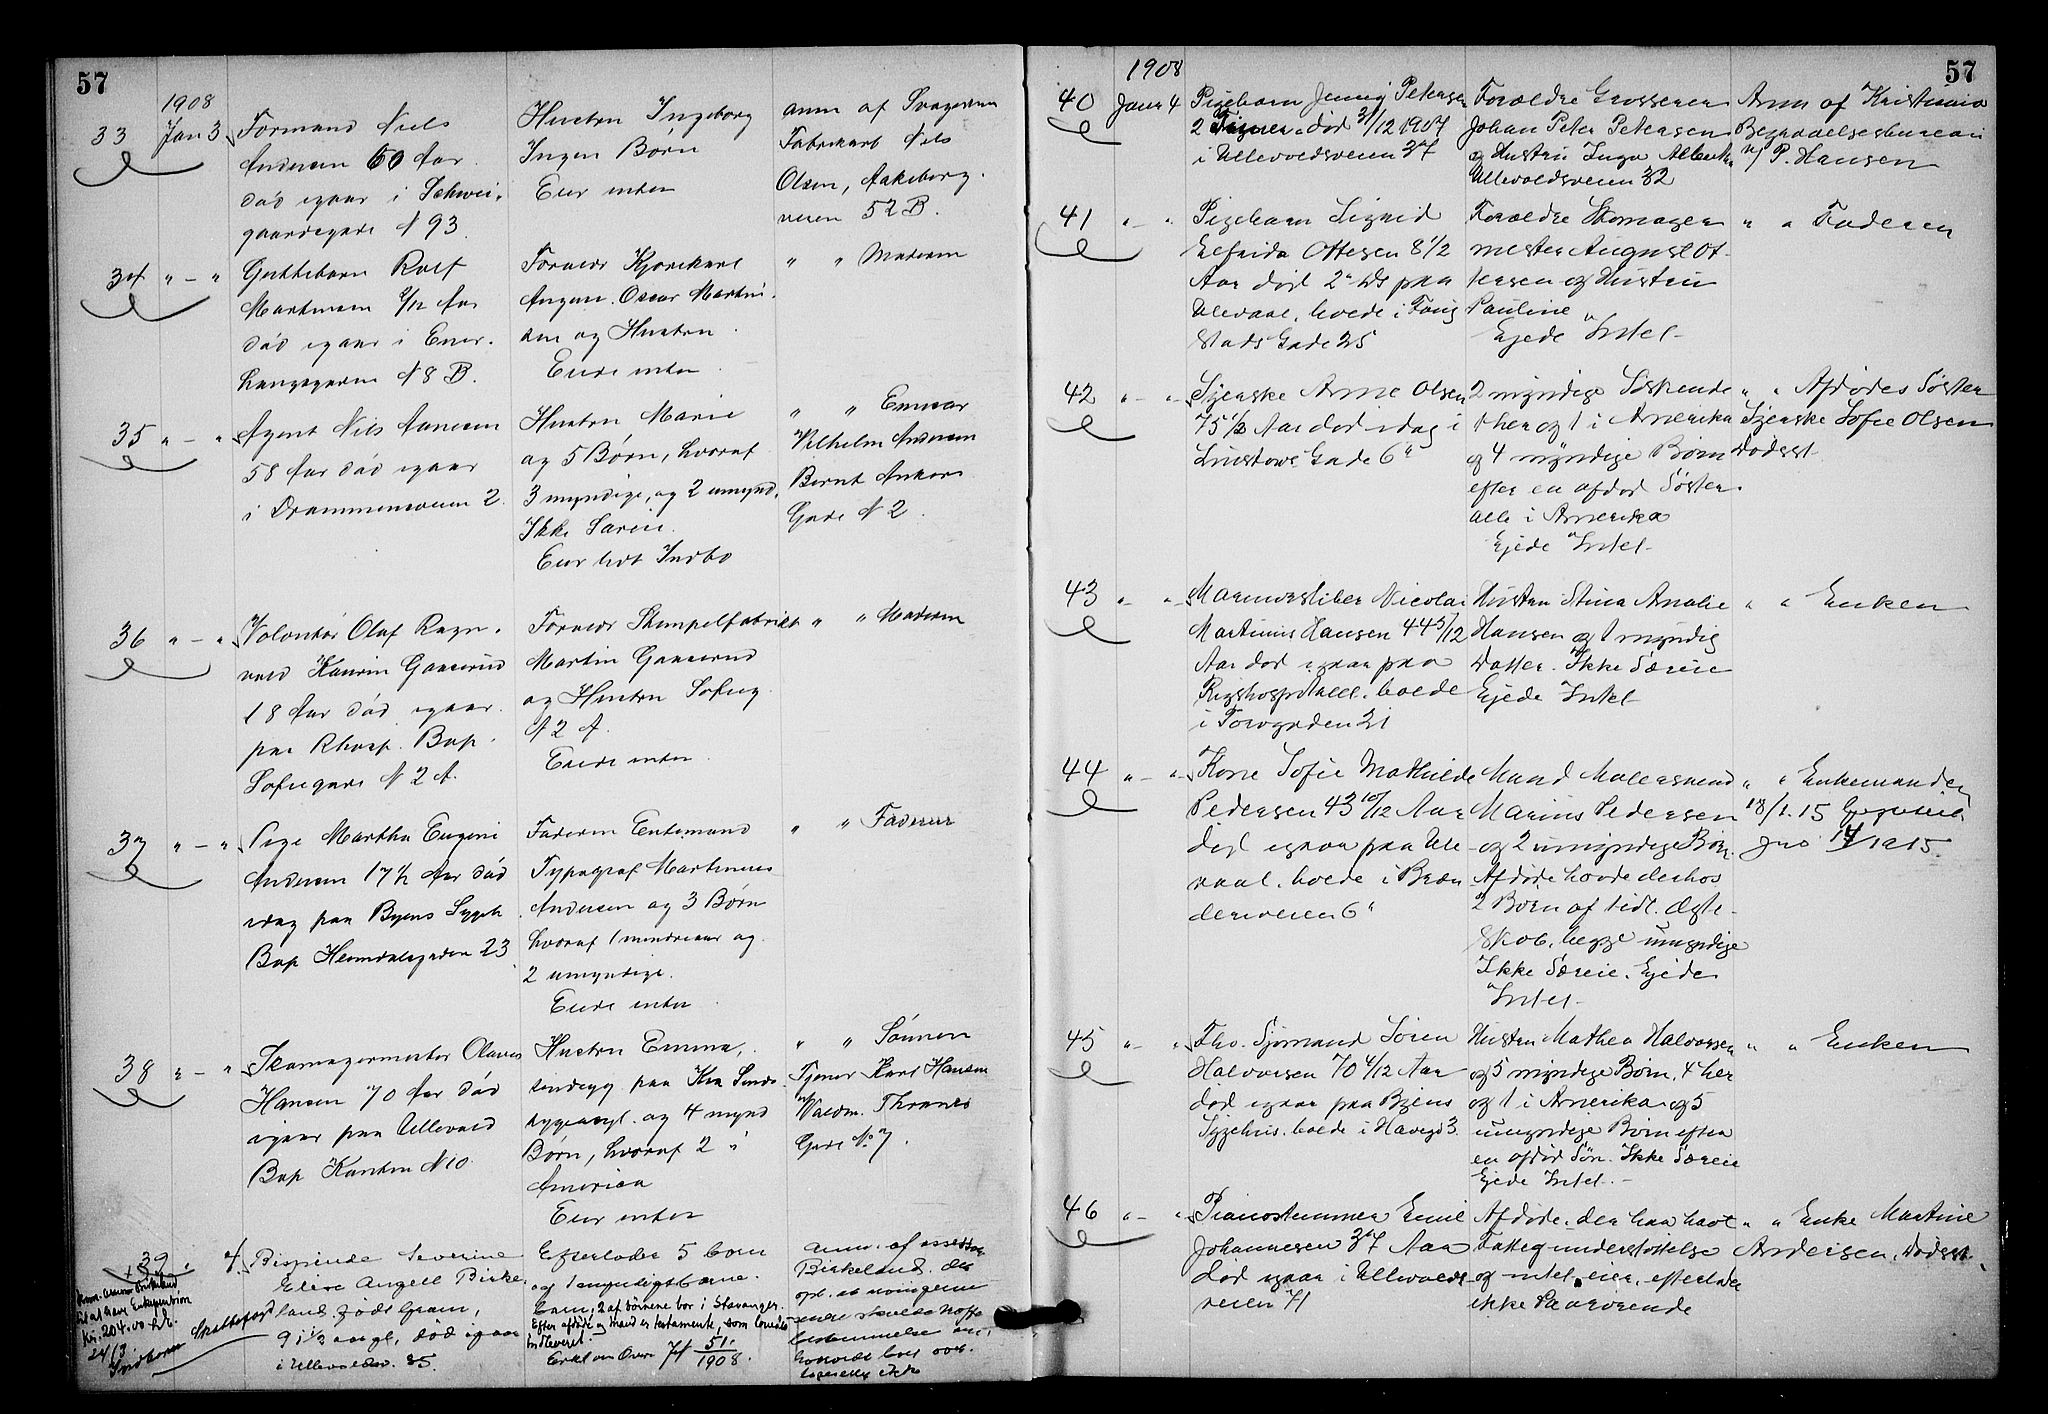 57
1908
33 Jan 3 Formand Niels
Andersen 60 Aar
død igaar i Schwei-
gaardsgade N 93
Hustru Ingeborg
Ingen Børn
Eier intet
Anm af Svogeren
Fabrikarb Nils
Olsen, Aakeberg-
veien 52 B.
34 " - " Guttebarn Rolf
Martinsen 2/12 Aar
død igaar i Ener-
haugsgaden N 8 B.
Forældre Kjørekarl
August Oscar Martin-
sen og Hustru
Eiede intet
" " Moderen
35 " - " Agent Nils
58 Aar død igaar
i Drammensveien 2
Hustru Marie
og 5 Børn, hvoraf
3 myndige, og 2 umynd.
Ikke Særeie.
Eier lidt Indbo
" "
Vilhelm Andersen
Bernt Ankers
Gade N 2
36 " - " Volontør Olaf Ragn-
vald
18 Aar død igaar
paa Rhosp. Bop.
Sofiegade N 2 A.
Forældre Stempelfabrikt
Martin
og Hustru Sofieg.
N 2 A.
Eiede intet
" " Moderen
37 " - " Pige Martha Eugenie
Andersen 17 1/2 Aar død
idag paa Byens Sygeh
Bop Heimdalsgaden 23
Faderen Enkemand
Typograf Martinius
Andersen og 3 Børn
hvoraf 1 mindreaar og
2 umyndige.
Eiede intet
" " Faderen
38 " - " Skomagermester Olaves
Hansen 70 Aar død
igaar paa Ullevaal
Bop Kanten N 10
Hustru Emma,
sindsyg paa Kra Sinds-
sygeasyl. og 4 mynd
Børn, hvoraf 2 i
Amerika
Eier intet
" " Sønnen
Tjener Karl Hansen
Waldm. Thranes
Gade No 7.
39 4. Bispinde Severine
Elise Angell Birke-
land, født Gram,
91 1/2 aar gl, død igaar
i Ullevoldsv. 85.
Efterlader 5 barn
og 1 myndigt barne-
barn, 2 af sønnerne bor i Stavanger.
Efter afdøde og mand er testamente, som
indleveret.
51/1908.
Anm. af assessor
Birkeland, der
opl. at
kr. 204.00
24/3
Skattefogd
1908
57
40 Janr 4 Pigebarn Jenny Petersen
2 Timer, død 31/12 1907
i Ullevoldsveien 37
Forældre Grosserer
Johan Peter Petersen
og Hustru Inga
Ullevoldsveien 32
Anm af Kristiania
Begravelsesbureau
v/ P. Hansen
41 " - " Pigebarn Sigrid
Elfrida Ottesen 8 1/2
Aar død 2 ds paa
Ulevaal, boede i Foug-
stads Gade 25
Forældre Skomager-
mester August Ot-
tersen og Hustru
Pauline
Ejede Intet -
" " Faderen
42 " - " Syerske Anne Olsen
75 1/2 Aar død idag i
Linstows Gade 6
2 myndige Søskende
1 her og 1 i Amerika
og 4 myndige Børn
efter en afdød Søster
alle i Amerika
Ejede Intet -
" " Afdødes Søster
Syerske Sofie Olsen
Dødsst
43 " - " Marmorsliber Nicolai
Martinius Hansen 44 5/12
Aar død igaar paa
Rigshospitalet, boede
i Torvgaden 21
Hustru Stina Amalie
Hansen og 1 myndig
Datter. Ikke Særeie
Ejede Intet -
" " Enken
44 " - " Kone Sofie Mathilde
Pedersen 43 10/12 Aar
død igaar paa Ule-
vaal, boede i Bræn-
deriveien 6
Mand Malersvend
Marius Pedersen
og 2 umyndige Børn
Afdøde havde derhos
2 Børn af tidl. Ægte-
skab, begge umyndige
Ikke Særeie, Ejede
Intet -
" " Enkemanden
18/1.15
14/1915.
45 " - " Fhv. Sjømand Søren
Halvorsen 70 4/12 Aar
død igaar paa Byens
Sygehus. boede i Haveg 3
Hustru Mathea Halvorsen
og 5 myndige Børn, 4 her
og 1 i Amerika og 5
umyndige Børn efter
en afdød Søn. Ikke Særeie
Ejede Intet. -
" " Enken
46 " - " Pianostemmer Emil
Johannesen 37 Aar
død igaar i Ullevolds-
veien 71
Afdøde, der har havt
Fattigunderstøttelse
og intet eier, efterlader
ikke Paarørende
" " Enke Martine
Andersen, Dødsst.